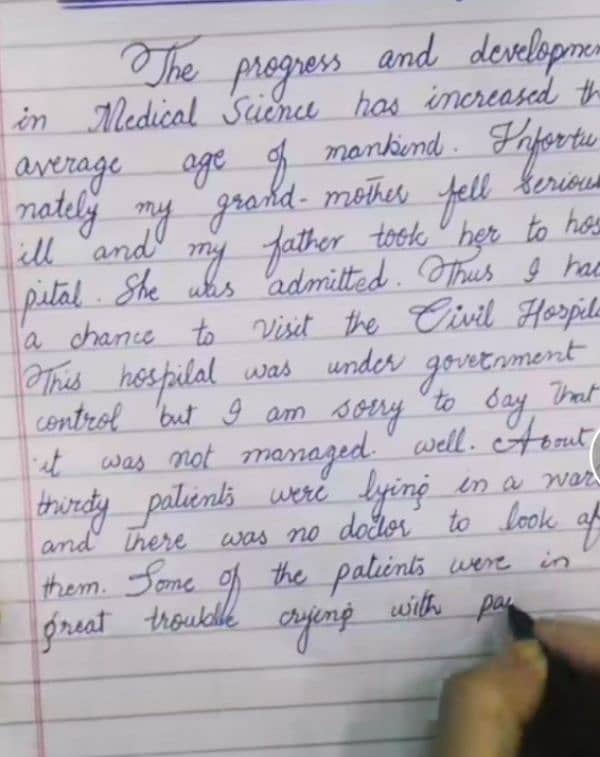 The progress and developmen
in Medical Science has increased th
average age of mankind. Unfortu
nately my grand-mother fell seriou
ill and my father took her to hos
pital. She was admitted. Thus I had
a chance to visit the Civil Hospita
This hospital was under government
control but I am sorry to say that
it was not managed. well. About
thirdy patients were lying in a war
and there was no doctor to look af
them. Some of the patients were in
great trouble crying with pa